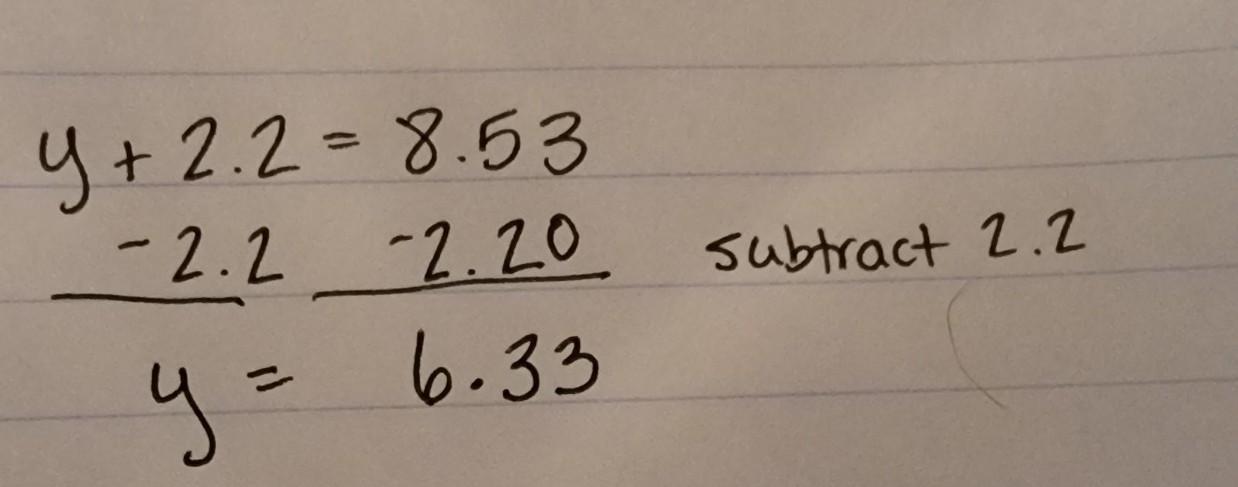 y + 2.2 = 8.53
-2.2 -2.20 subtract 2.2
y = 6.33